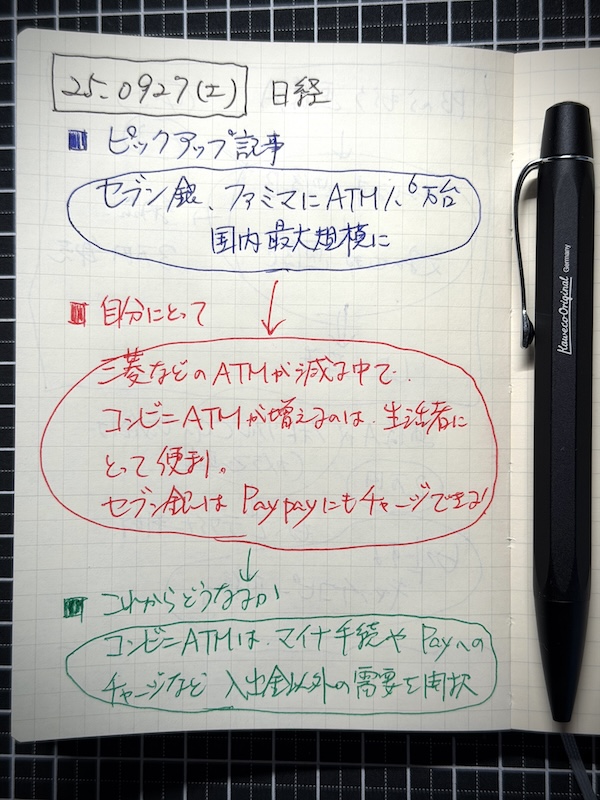 25.0927(土) 日経
ピックアップ記事
セブン銀、ファミマにATM 1、6万台
国内最大規模に
自分にとって
三菱などのATMが減る中で、
コンビニATMが増えるのは、生活者に
とって便利。
セブン銀は Paypayにもチャージできる!
これからどうなるか
コンビニATMは、マイナ手続や Payへの
チャージなど 入出金以外の需要を開拓
Kaweco-Original Germany